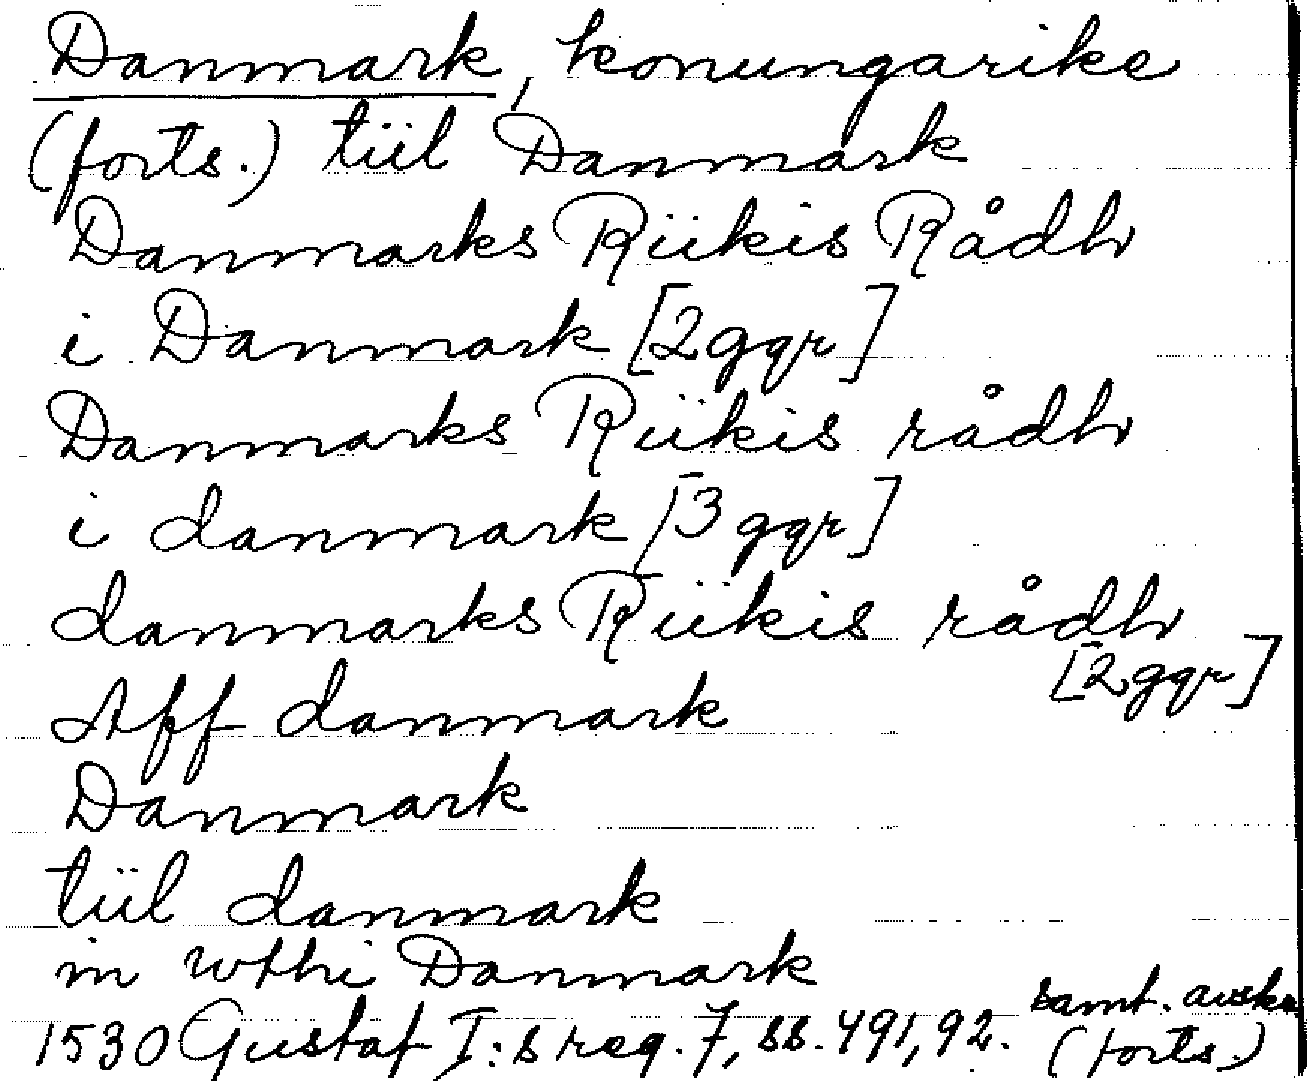 Danmark, konungarike
(forts.) tiil Danmark
Danmarks Riikis Rådh
i Danmark [2 ggr]
Danmarks Riikis rådh
i danmark [3 ggr]
danmarks Riikis rådh
[2 ggr]
Aff danmark
Danmark
tiil danmark
in wthi Danmark
samt. avskr
1530 Gustaf I:s reg. 7, ss. 491, 92. (forts.)